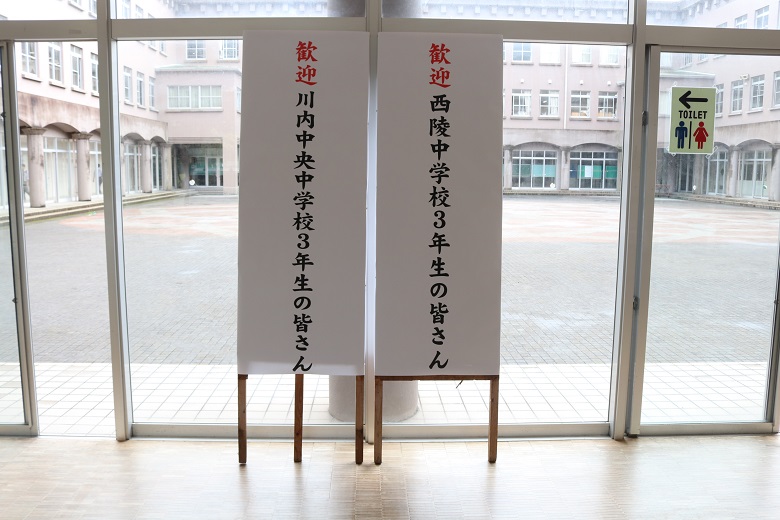 歓迎 西陵中学校3年生の皆さん
歓迎 川内中央中学校3年生の皆さん
TOILET